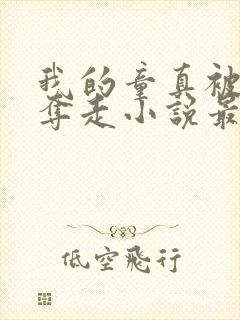 我的童真被
夺走小説最
低空飛行